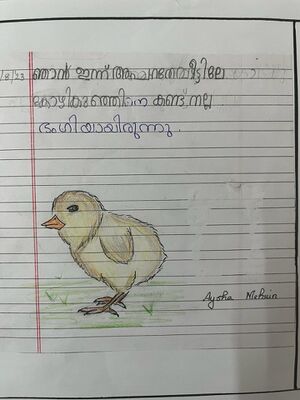 /8/23 ഞാൻ ഇന്ന് അപ്പുറത്തെവീട്ടിലേ
കോഴികുഞ്ഞിനെ കണ്ടു. നല്ല
ഭംഗിയായിരുന്നു.
Aysha Mehrin